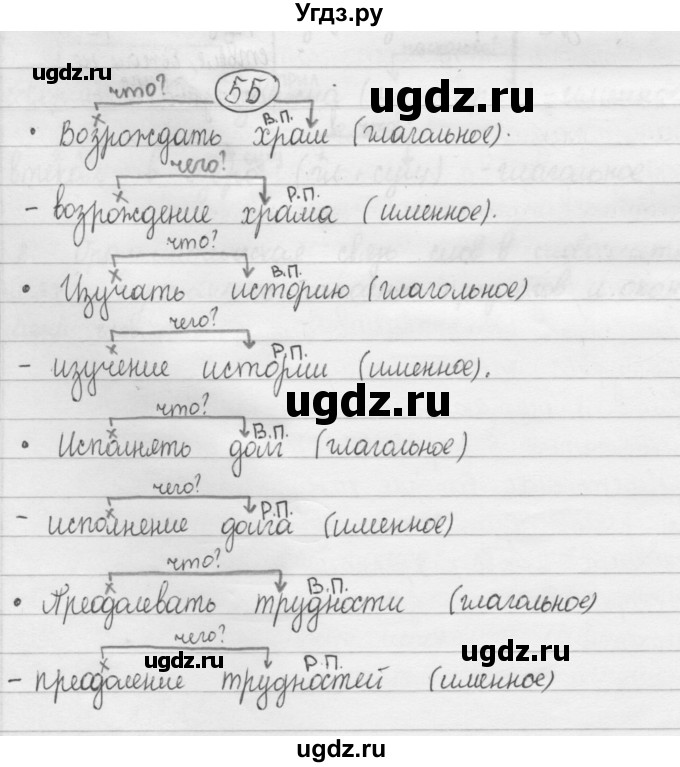 Угдз.ру
ugdz.ru
что? 55
ugdz.ru
В.П.
• Возрождать храм (глагольное).
чего?
Р.П.
- возрождение храма (именное).
что?
В.П.
• Изучать историю (глагольное)
чего?
Р.П.
- изучение истории (именное).
ugdz.ru
что?
В.П.
• Исполнять долг (глагольное)
чего?
Р.П.
- исполнение долга (именное)
что?
В.П.
• Преодолевать трудности (глагольное)
чего?
ugdz.ru Р.П. ugdz.ru
- преодоление трудностей (именное)
ugdz.ru